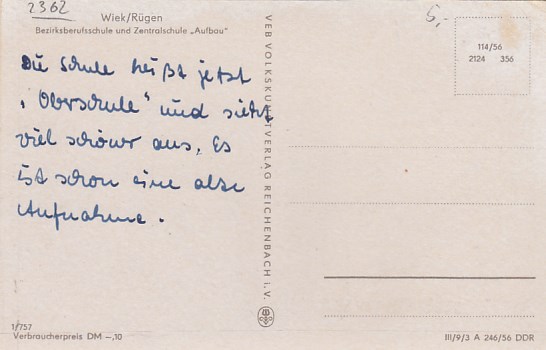 2362
Wiek/Rügen
Bezirksberufsschule und Zentralschule „Aufbau"
5,-
114/56
2124 356
Die Schule heißt jetzt
„Oberschule" und sieht
viel schöner aus. Es
ist schon eine alte
Aufnahme.
VEB VOLKSKUNSTVERLAG REICHENBACH i. V.
1/757
Verbraucherpreis DM –,10
III/9/3 A 246/56 DDR